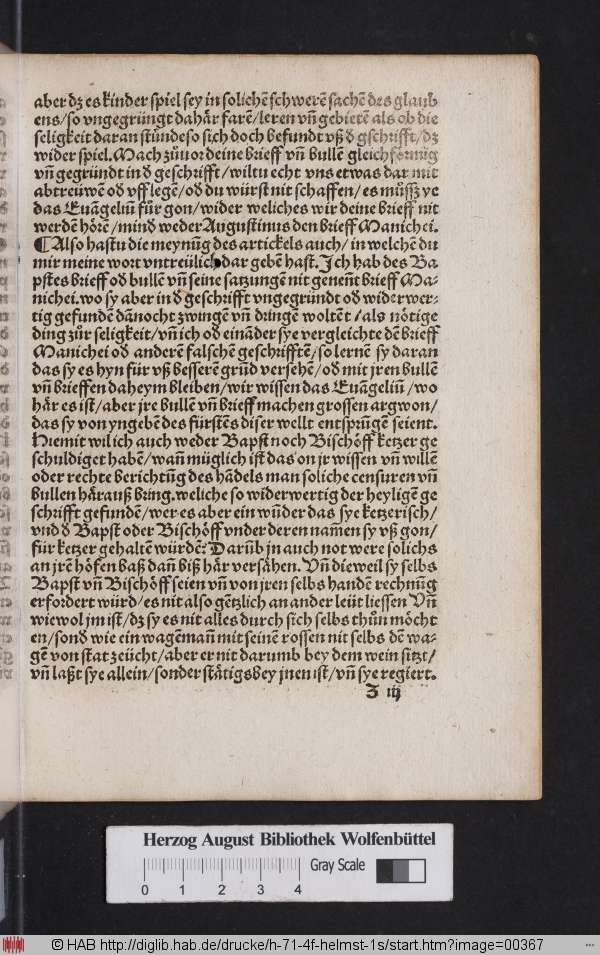 aber dz es kinder spiel sey in solichē schwerē sachē des glaub
ens/so vngegrüngt dahär farē/leren vñ gebietē als ob die
seligkeit daran stünde so sich doch befundt vß d̄ gschrifft/dz
wider spiel. Mach zůuor deine brieff vñ bullē gleichförmig
vñ gegründt in d̄ geschrifft/wiltu echt vns etwas dar mit
abtreüwē od̄ vff legē/od̄ du würst nit schaffen/es můssz ye
das Euāgeliū für gon/wider weliches wir deine brieff nit
werdē hörē/mind̄ weder Augustinus den brieff Manichei.
¶ Also hastu die meynūg des artickels auch/in welchē du
mir meine wort vntreülich dar gebē hast. Ich hab des Ba
pstes brieff od̄ bullē vñ seine satzungē nit geneñt brieff Ma-
nichei. wo sy aber in d̄ geschrifft vngegründt od̄ widerwer-
tig gefundē dānocht zwingē vñ dringē woltēt/als nötige
ding zůr seligkeit/vñ ich od̄ eināder sye vergleichte dē brieff
Manichei od̄ anderē falschē geschrifftē/so lernē sy daran
das sy es hyn für vß besserē grūd versehē/od̄ mit jren bullē
vñ brieffen daheym bleiben/wir wissen das Euāgeliū/wo
här es ist/aber jre bullē vñ brieff machen grossen argwon/
das sy von yngebē des fürstēs diser wellt entsprūgē seient.
Hiemit wil ich auch weder Bapst noch Bischöff ketzer ge
schuldiget habē/wañ müglich ist das on jr wissen vñ willē
oder rechte berichtūg des hādels man soliche censuren vñ
bullen häraußbring. weliche so widerwertig der heyligē ge
schrifft gefundē/wer es aber ein wūder das sye ketzerisch/
vnd d̄ Bapst oder Bischöff vnder deren namen sy vß gon/
für ketzer gehaltē würdē: Darūb jn auch not were solichs
an jrē höfen baß dañ biß här versähen. Vñ dieweil sy selbs
Bapst vñ Bischöff seien vñ von jren selbs handē rechnūg
erfordert würd/es nit also gētzlich an ander leüt liessen Vñ
wiewol jm ist/dz sy es nit alles durch sich selbs thůn möcht
en/sond̄ wie ein wagēmañ mit seinē rossen nit selbs dē wa-
gē von stat zeücht/aber er nit darumb bey dem wein sitzt/
vñ laßt sye allein/sonder stätigs bey jnen ist/vñ sye regiert.
Z iij
Herzog August Bibliothek Wolfenbüttel
Gray Scale
0 1 2 3 4
© HAB http://diglib.hab.de/drucke/h-71-4f-helmst-1s/start.htm?image=00367